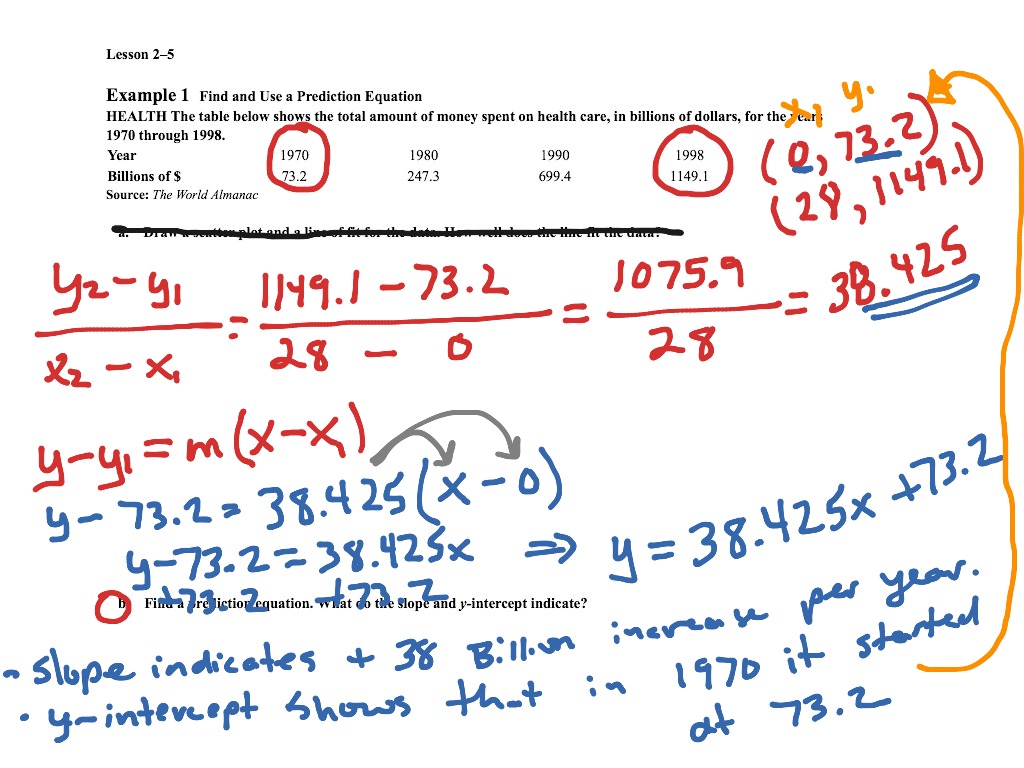 Lesson 2–5
Example 1 Find and Use a Prediction Equation
HEALTH The table below shows the total amount of money spent on health care, in billions of dollars, for the years
1970 through 1998.
Year 1970 1980 1990 1998
Billions of $ 73.2 247.3 699.4 1149.1
Source: The World Almanac
x, y.
(0, 73.2)
(28, 1149.1)
a. Draw a scatter plot and a line of fit for the data. How well does the line fit the data?
y2 - y1 / x2 - x1 = 1149.1 - 73.2 / 28 - 0 = 1075.9 / 28 = 38.425
y - y1 = m(x - x1)
y - 73.2 = 38.425(x - 0)
y - 73.2 = 38.425x ⇒ y = 38.425x + 73.2
+73.2 +73.2
b. Find a prediction equation. What do the slope and y-intercept indicate?
- slope indicates + 38 Billion increase per year.
• y-intercept shows that in 1970 it started
at 73.2